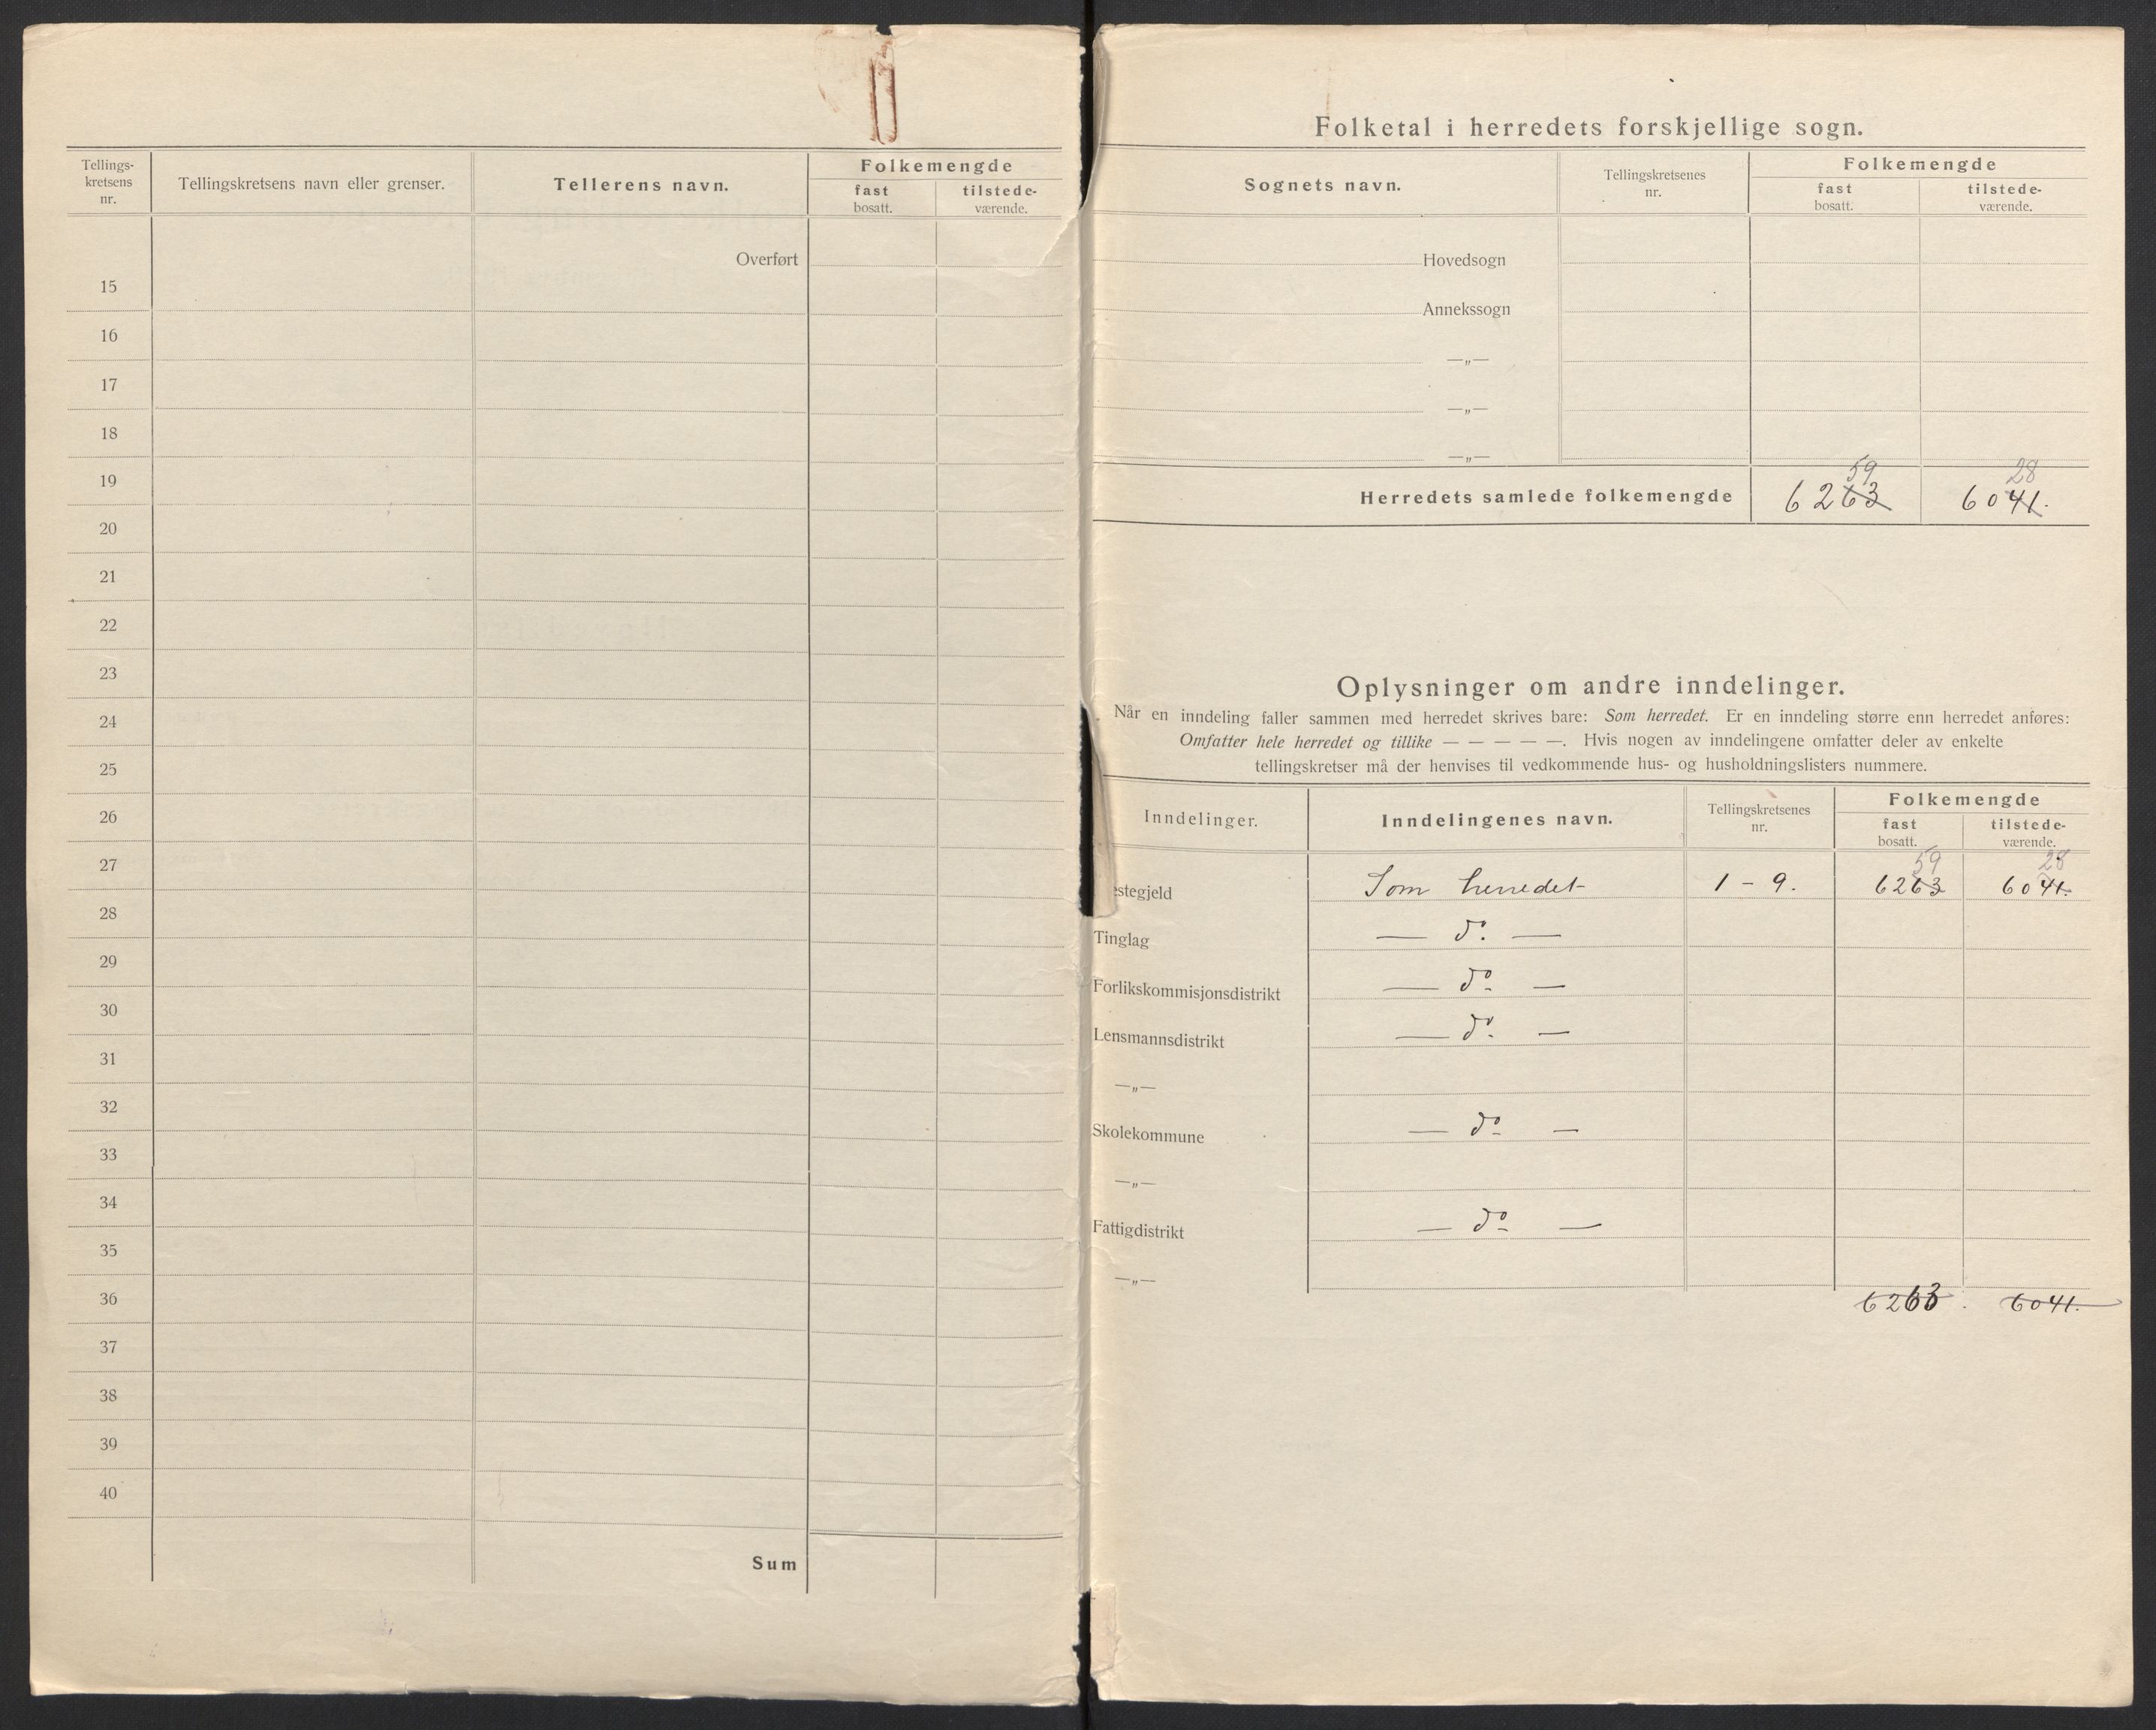 Tellings-
kretsens
nr.
Tellingskretsens navn eller grenser.
Tellerens navn.
Folkemengde
fast
bosatt.
tilstede-
værende.
Overført
15
16
17
18
19
20
21
22
23
24
25
26
27
28
29
30
31
32
33
34
35
36
37
38
39
40
Sum
Folketal i herredets forskjellige sogn.
Sognets navn.
Tellingskretsenes
nr.
Folkemengde
fast
bosatt.
tilstede-
værende.
Hovedsogn
Annekssogn
—„—
—„—
—„—
59 28
Herredets samlede folkemengde 6263 6041.
Oplysninger om andre inndelinger.
Når en inndeling faller sammen med herredet skrives bare: Som herredet. Er en inndeling større enn herredet anføres:
Omfatter hele herredet og tillike — — — — —. Hvis nogen av inndelingene omfatter deler av enkelte
tellingskretser må der henvises til vedkommende hus- og husholdningslisters nummere.
Inndelinger.
Inndelingenes navn.
Tellingskretsenes
nr.
Folkemengde
fast
bosatt.
tilstede-
værende.
59 28
estegjeld Som herredet 1 - 9. 6263 6041.
Tinglag — do. —
Forlikskommisjonsdistrikt — do —
Lensmannsdistrikt — do —
—„—
Skolekommune — do —
—„—
Fattigdistrikt — do —
—„—
6263. 6041.